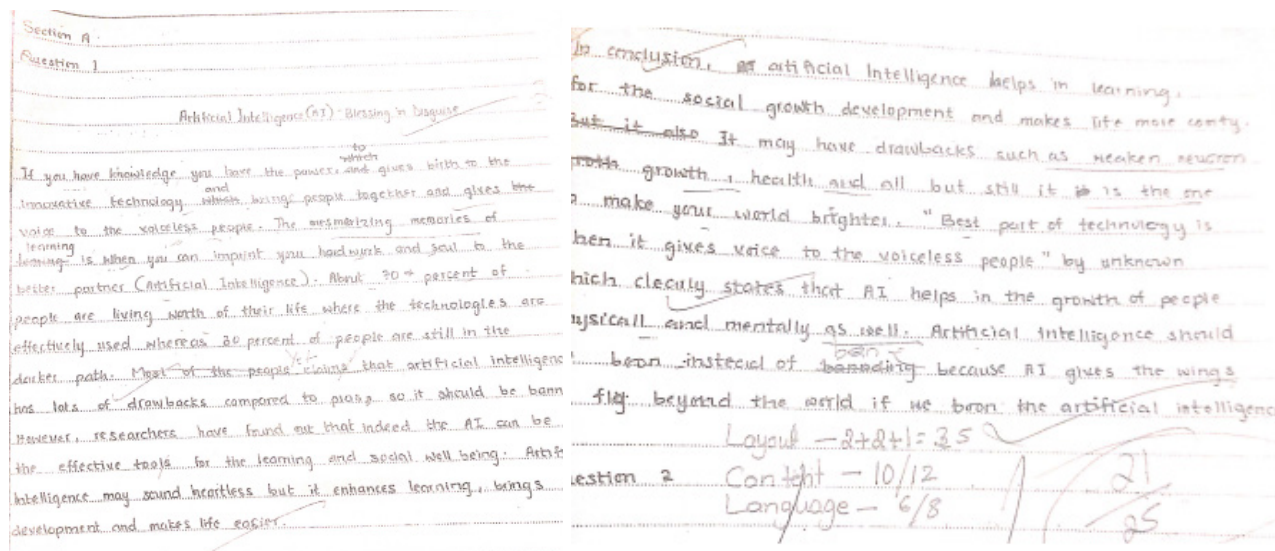 Section A.
Question 1
Artificial Intelligence (AI) - Blessing in Disguise
to
which
If you have knowledge you have the power and gives birth to the
and
innovative technology which brings people together and gives the
voice to the voiceless people. The mesmerizing memories of
learning
is when you can imprint your hardwork and soul to the
better partner (Artificial Intelligence). About 70 percent of
people are living worth of their life where the technologies are
effectively used whereas 30 percent of people are still in the
darker path. Most of the people claims that artificial intelligenc
has lots of drawbacks compared to pros, so it should be bann
However, researchers have found out that indeed the AI can be
the effective tools for the learning and social well being. Artif
Intelligence may sound heartless but it enhances learning, brings
development and makes life easier.
In conclusion, as artificial Intelligence helps in learning,
for the social growth development and makes life more comfy.
But it also It may have drawbacks such as weaken neuron
growth, health and all but still it is the one
make your world brighter. "Best part of technology is
hen it gives voice to the voiceless people" by unknown
hich clearly states that AI helps in the growth of people
ysicall and mentally as well. Artificial intelligence should
ban
instead of because AI gives the wings
fly beyond the world if we bron the artificial intelligenc
Layout - 2+2+1=
Content - 10/12
estion 2
Language - 6/8
21
25